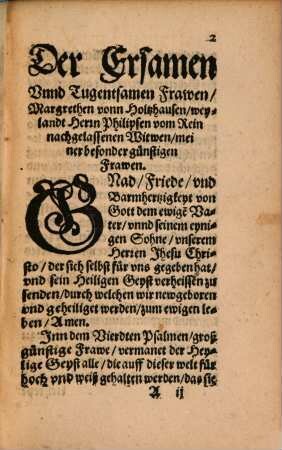 2
Der Ersamen
Vnnd Tugentsamen Frawen/
Margrethen vonn Holtzhausen/wey-
landt Herrn Philipsen vom Rein
nachgelassenen Witwen/mei
ner besonder günstigen
Frawen.
GNad/Friede/vnd
Barmhertzigkeyt von
Gott dem ewigē Va-
ter/vnnd seinem eyni-
gen Sohne/vnserem
Herren Jhesu Chri-
sto/der sich selbst für vns gegeben hat/
vnd sein Heiligen Geyst verheissen zu
senden/durch welchen wir newgeboren
vnd geheiliget werden/zum ewigen le-
ben/Amen.
Jnn dem Vierdten Psalmen/groß
günstige Frawe/vermanet der Hey-
lige Geyst alle/die auff dieser welt für
hoch vnd weiß gehalten werden/das sie
A ij